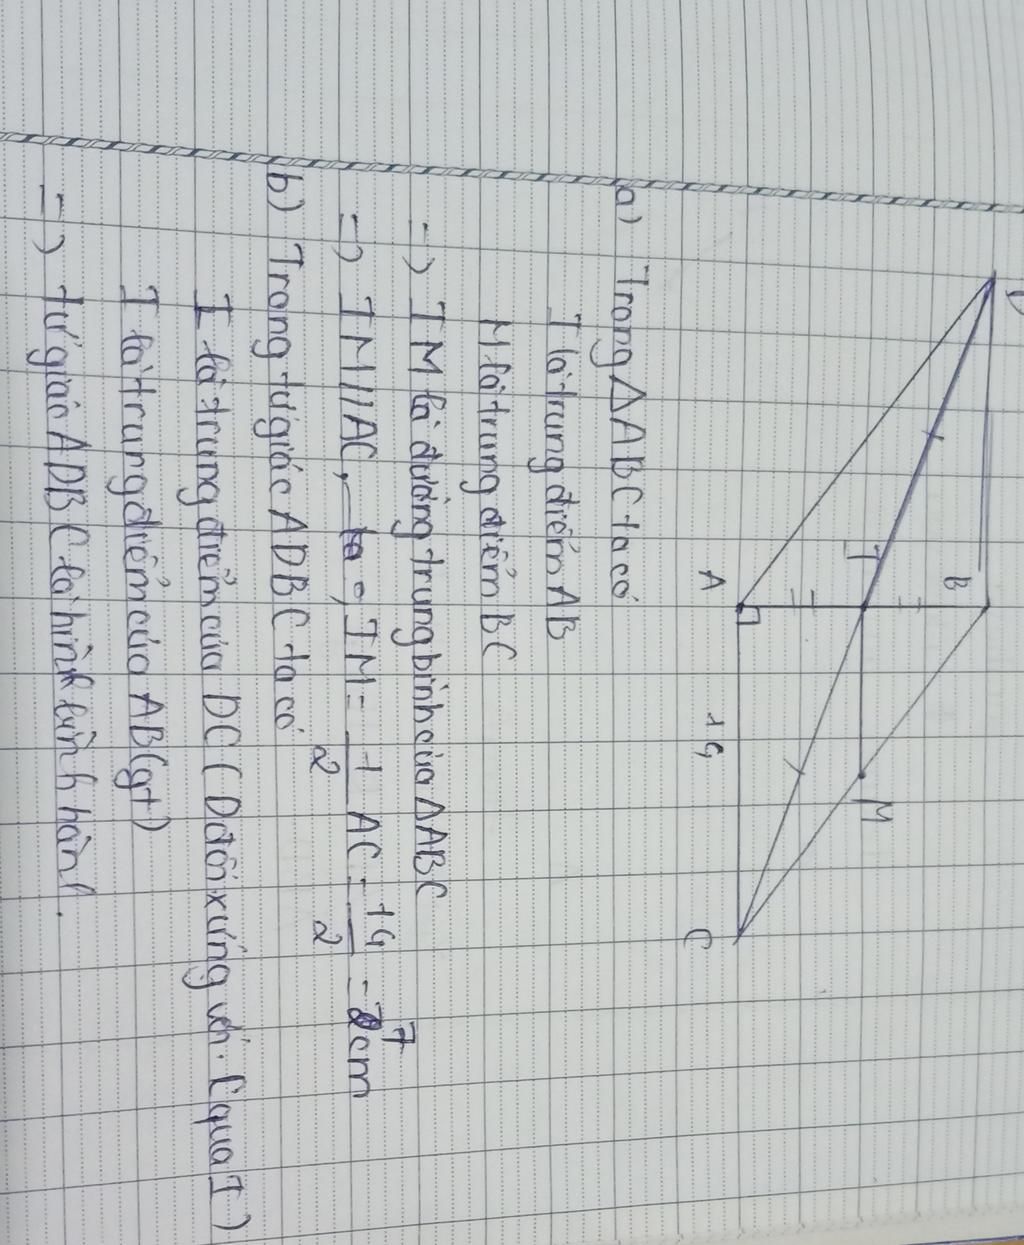 D
B
I
M
A
14
C
a) Trong ΔABC ta có
I là trung điểm AB
M là trung điểm BC
=) IM là đường trung bình của ΔABC
=) IM // AC, IM = 1/2 AC = 14/2 = 7 cm
b) Trong tứ giác ADBC ta có
I là trung điểm của DC (D đối xứng với C qua I)
I là trung điểm của AB (gt)
=) tứ giác ADBC là hình bình hành.